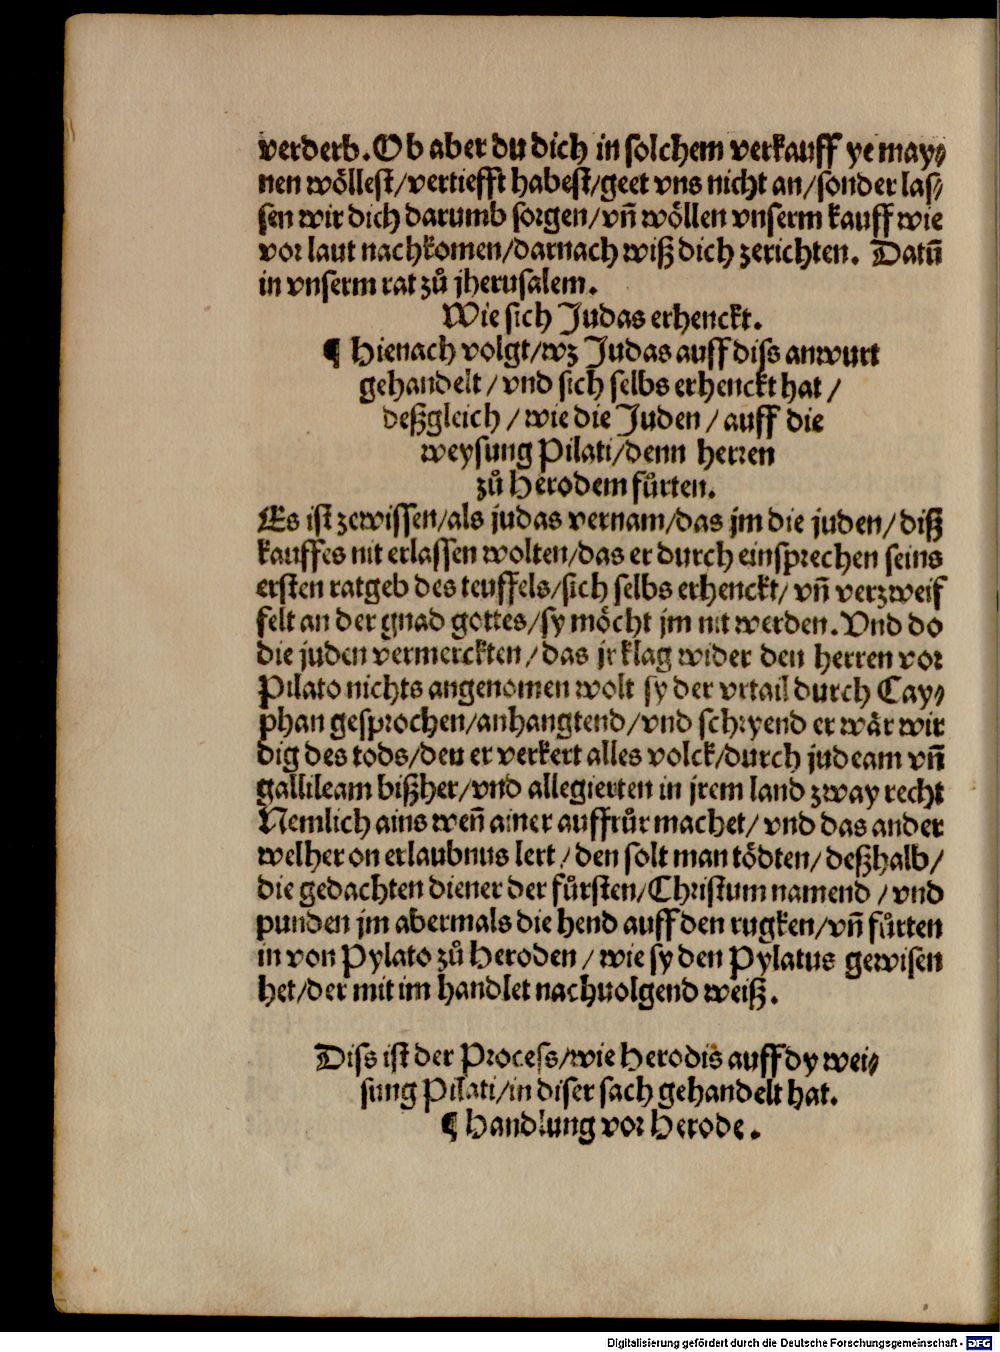 verderb. Ob aber du dich in solchem verkauff ye may⸗
nen wöllest/vertiefft habest/geet vns nicht an/sonder las⸗
sen wir dich darumb sorgen/vn̄ wöllen vnserm kauff wie
vor laut nachkomen/darnach wiß dich zerichten. Datū
in vnserm rat zů jherusalem.
Wie sich Judas erhenckt.
¶ Hienach volgt/wz Judas auff diss anwurt
gehandelt / vnd sich selbs erhenckt hat /
deßgleich / wie die Juden / auff die
weysung Pilati/denn herren
zů Herodem fůrten.
Es ist zewissen/als judas vernam/das jm die juden/ diß
kauffes nit erlassen wolten/das er durch einsprechen seins
ersten ratgeb des teuffels/sich selbs erhenckt/ vn̄ verzweif
felt an der gnad gottes/sy möcht jm nit werden. Vnd do
die juden vermerckten / das jr klag wider den herren vor
Pilato nichts angenomen wolt sy der vrtail durch Cay⸗
phan gesprochen/anhangtend/vnd schryend er wär wir
dig des tods/den er verkert alles volck/durch judeam vn̄
gallileam bißher/vnd allegierten in jrem land zway recht
Nemlich ains wen̄ ainer auffrůr machet/ vnd das ander
welher on erlaubnus lert / den solt man tödten/ deßhalb/
die gedachten diener der fůrsten/Christum namend / vnd
punden jm abermals die hend auff den rugken/vn̄ fůrten
in von Pylato zů Heroden / wie sy den Pylatus gewisen
het/der mit im handlet nachuolgend weiß.
Diss ist der Process/wie Herodis auff dy wei⸗
sung Pilati/in diser sach gehandelt hat.
¶ Handlung vor Herode.
Digitalisierung gefördert durch die Deutsche Forschungsgemeinschaft - DFG